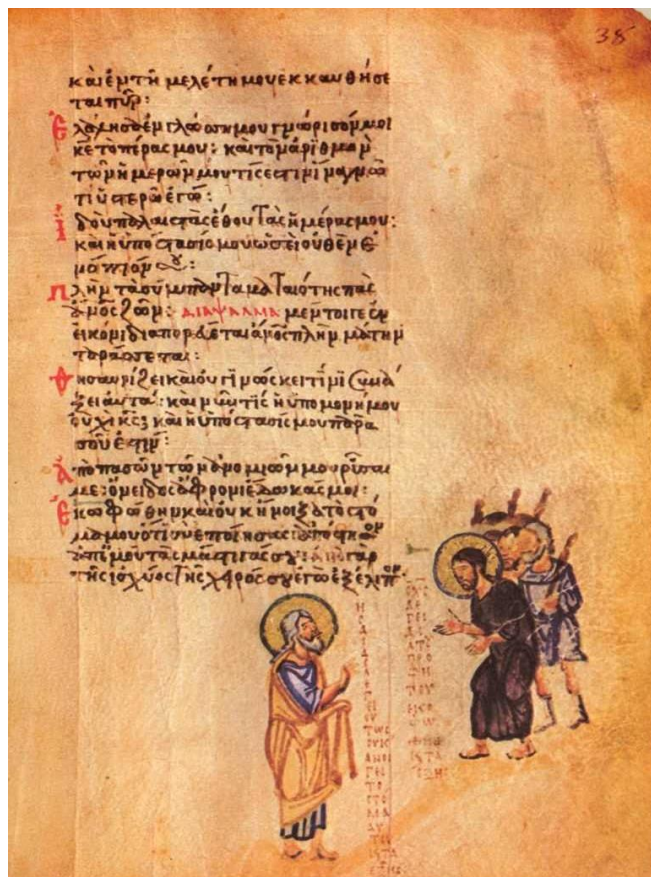 38
καὶ ἐν τῆ μελέτη μου ἐκκαυθήσε
ται πῦρ:
Ἐλάλησα ἐν γλώσση μου γνώρισόν μοι
κε τὸ πέρας μου: καὶ τὸν ἀριθμὸν
τῶν ἡμερῶν μου τίς ἐστιν ἵνα γνῶ
τί ὑστερῶ ἐγώ:
Ἰδοὺ παλαιστὰς ἔθου τὰς ἡμέρας μου:
καὶ ἡ ὑπόστασίς μου ὡσεὶ οὐθὲν ἐ
νώπιόν σου:
Πλὴν τὰ σύμπαντα ματαιότης πᾶς
ἄνος ζῶν: ΔΙΑΨΑΛΜΑ μέντοιγε ἐν
εἰκόνι διαπορεύεται ἄνος πλὴν μάτην
ταράσσεται:
Θησαυρίζει καὶ οὐ γινώσκει τίνι συνά
ξει αὐτά: καὶ νῦν τίς ἡ ὑπομονή μου
οὐχὶ κς καὶ ἡ ὑπόστασίς μου παρὰ
σοῦ ἐστιν:
Ἀπὸ πασῶν τῶν ἀνομιῶν μου ῥῦσαι
με: ὄνειδος ἄφρονι ἔδωκάς με:
Ἐκωφώθην καὶ οὐκ ἤνοιξα τὸ στό
μα μου ὅτι σὺ ἐποίησας: ἀπόστησον
ἀπ ἐμοῦ τὰς μάστιγάς σου: ἀπὸ γὰρ
τῆς ἰσχύος τῆς χειρός σου ἐγὼ ἐξέλιπον: